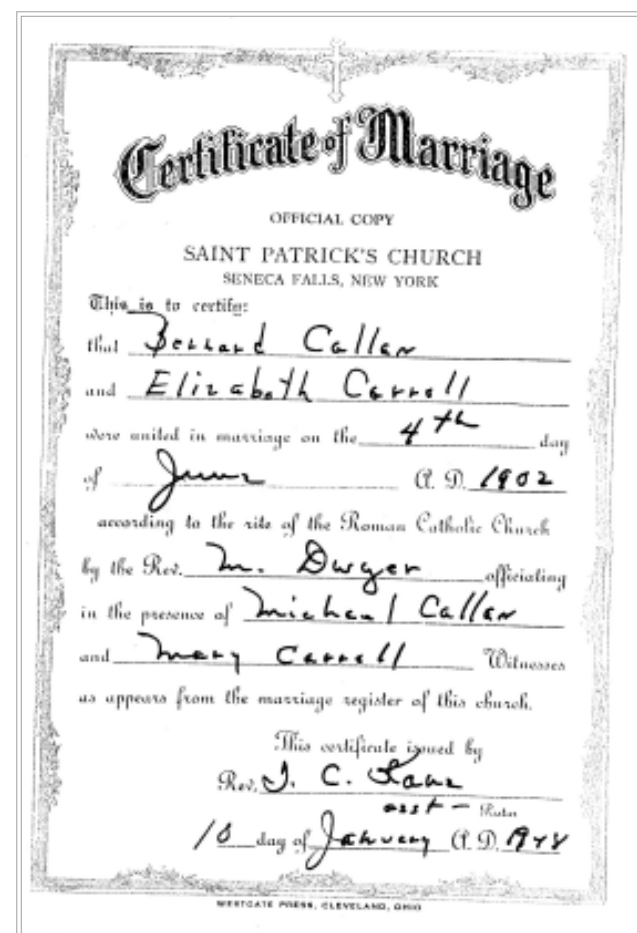 Certificate of Marriage
OFFICIAL COPY
SAINT PATRICK'S CHURCH
SENECA FALLS, NEW YORK
This is to certify:
that Bernard Callan
and Elizabeth Carroll
were united in marriage on the 4th day
of June A. D. 1902
according to the rite of the Roman Catholic Church
by the Rev. M. Dwyer officiating
in the presence of Michael Callan
and Mary Carroll Witnesses
as appears from the marriage register of this church.
This certificate issued by
Rev. J. C.
asst - Rector
10 day of January A. D. 1948
WESTGATE PRESS, CLEVELAND, OHIO